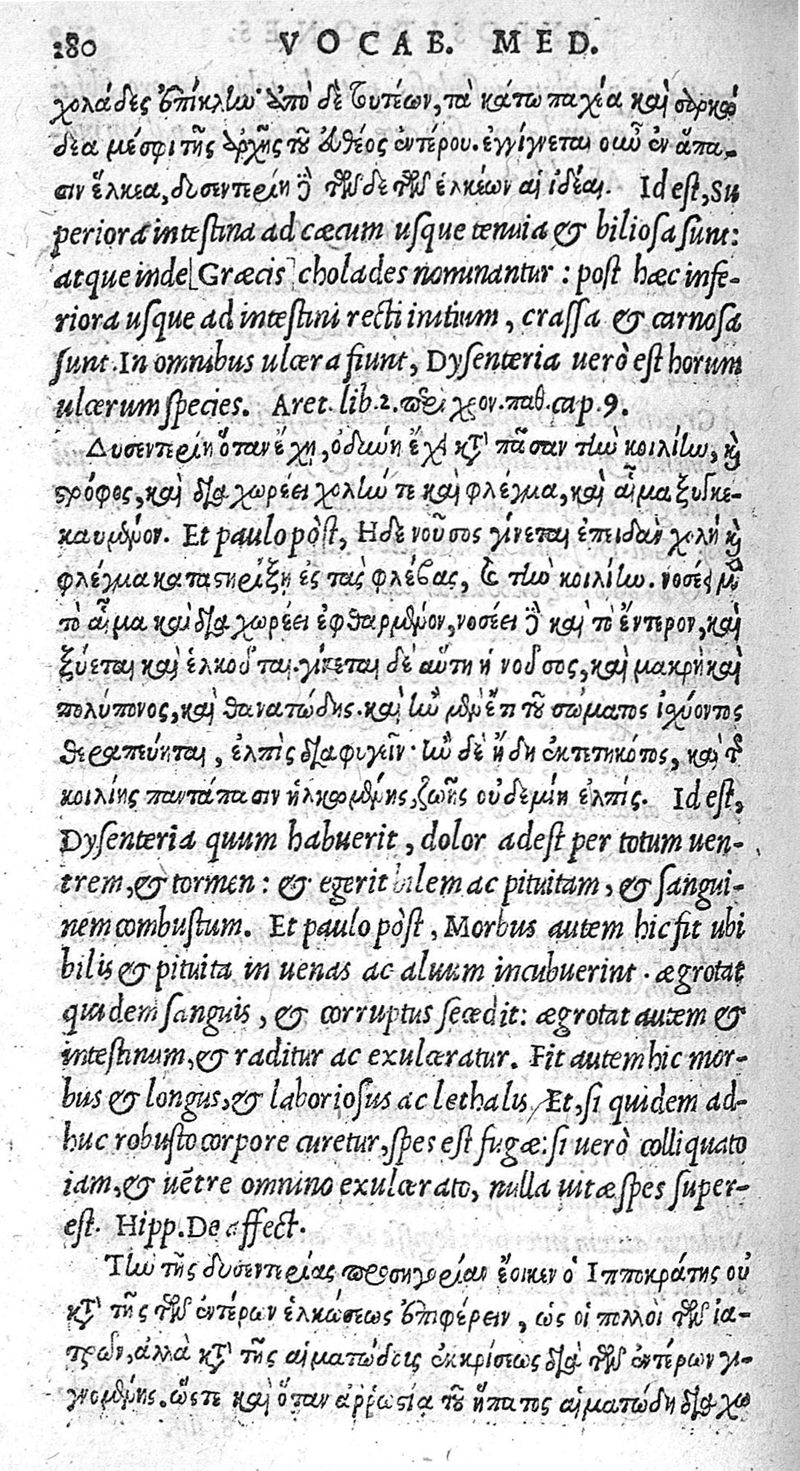 280 VOCAB. MED.
χολάδες ἐπίκλην· ἀπὸ δὲ τουτέων, τὰ κάτω παχέα καὶ σαρκώ
δεα μέσφι τῆς ἀρχῆς τοῦ εὐθέος ἐντέρου. ἐγγίγνεται οὖν ἐν ἅπα-
σιν ἕλκεα, δυσεντερίη δὲ τῶν δε τῶν ἑλκέων αἱ ἰδέαι. Id est, Su
periora intestina ad cæcum usque tenuia & biliosa sunt:
atque inde [Græcis] cholades nominantur: post hæc infe-
riora usque ad intestini recti initium, crassa & carnosa
sunt. In omnibus ulcera fiunt, Dysenteria uerò est horum
ulcerum species. Aret. lib. 2. περὶ χρον. παθ. cap. 9.
Δυσεντερίη ὅταν ἔχῃ, ὀδύνη ἔχει κατὰ πᾶσαν τὴν κοιλίην, καὶ
στρόφος, καὶ διαχωρέει χολήν τε καὶ φλέγμα, καὶ αἷμα ξυγκε-
καυμένον. Et paulo pòst, Ηδε νοῦσος γίνεται ἐπειδὰν χολὴ καὶ
φλέγμα καταστηρίξῃ ἐς τὰς φλέβας, & τὴν κοιλίην. νοσέει μὲν
τὸ αἷμα καὶ διαχωρέει ἐφθαρμένον, νοσέει δὲ καὶ τὸ ἔντερον, καὶ
ξύεται καὶ ἑλκοῦται. γίνεται δὲ αὕτη ἡ νοῦσος, καὶ μακρὴ καὶ
πολύπονος, καὶ θανατώδης. καὶ ἢν μὲν ἔτι τοῦ σώματος ἰσχύοντος
θεραπεύηται, ἐλπὶς διαφυγεῖν· ἢν δὲ ἤδη ἐκτετηκότος, καὶ τῆς
κοιλίης παντάπασιν ἡλκωμένης, ζωῆς οὐδεμίη ἐλπίς. Id est,
Dysenteria quum habuerit, dolor adest per totum uen-
trem, & tormen: & egerit bilem ac pituitam, & sangui-
nem combustum. Et paulo pòst, Morbus autem hic fit ubi
bilis & pituita in uenas ac aluum incubuerint. ægrotat
quidem sanguis, & corruptus secedit: ægrotat autem &
intestinum, & raditur ac exulceratur. Fit autem hic mor-
bus & longus, & laboriosus ac lethalis. Et, si quidem ad-
huc robusto corpore curetur, spes est fugæ: si uerò colliquato
iam, & uētre omnino exulcerato, nulla uitæ spes super-
est. Hipp. De affect.
Τὴν τῆς δυσεντερίας προσηγορίαν ἔοικεν ὁ Ἱπποκράτης οὐ
κατὰ τῆς τῶν ἐντέρων ἑλκώσεως ἐπιφέρειν, ὡς οἱ πολλοὶ τῶν ἰα-
τρῶν, ἀλλὰ κατὰ τῆς αἱματώδεις ἐκκρίσεως διὰ τῶν ἐντέρων γι-
γνομένης. ὥστε καὶ ὅταν ἀῤῥωστία τοῦ ἥπατος αἱματώδη διαχω